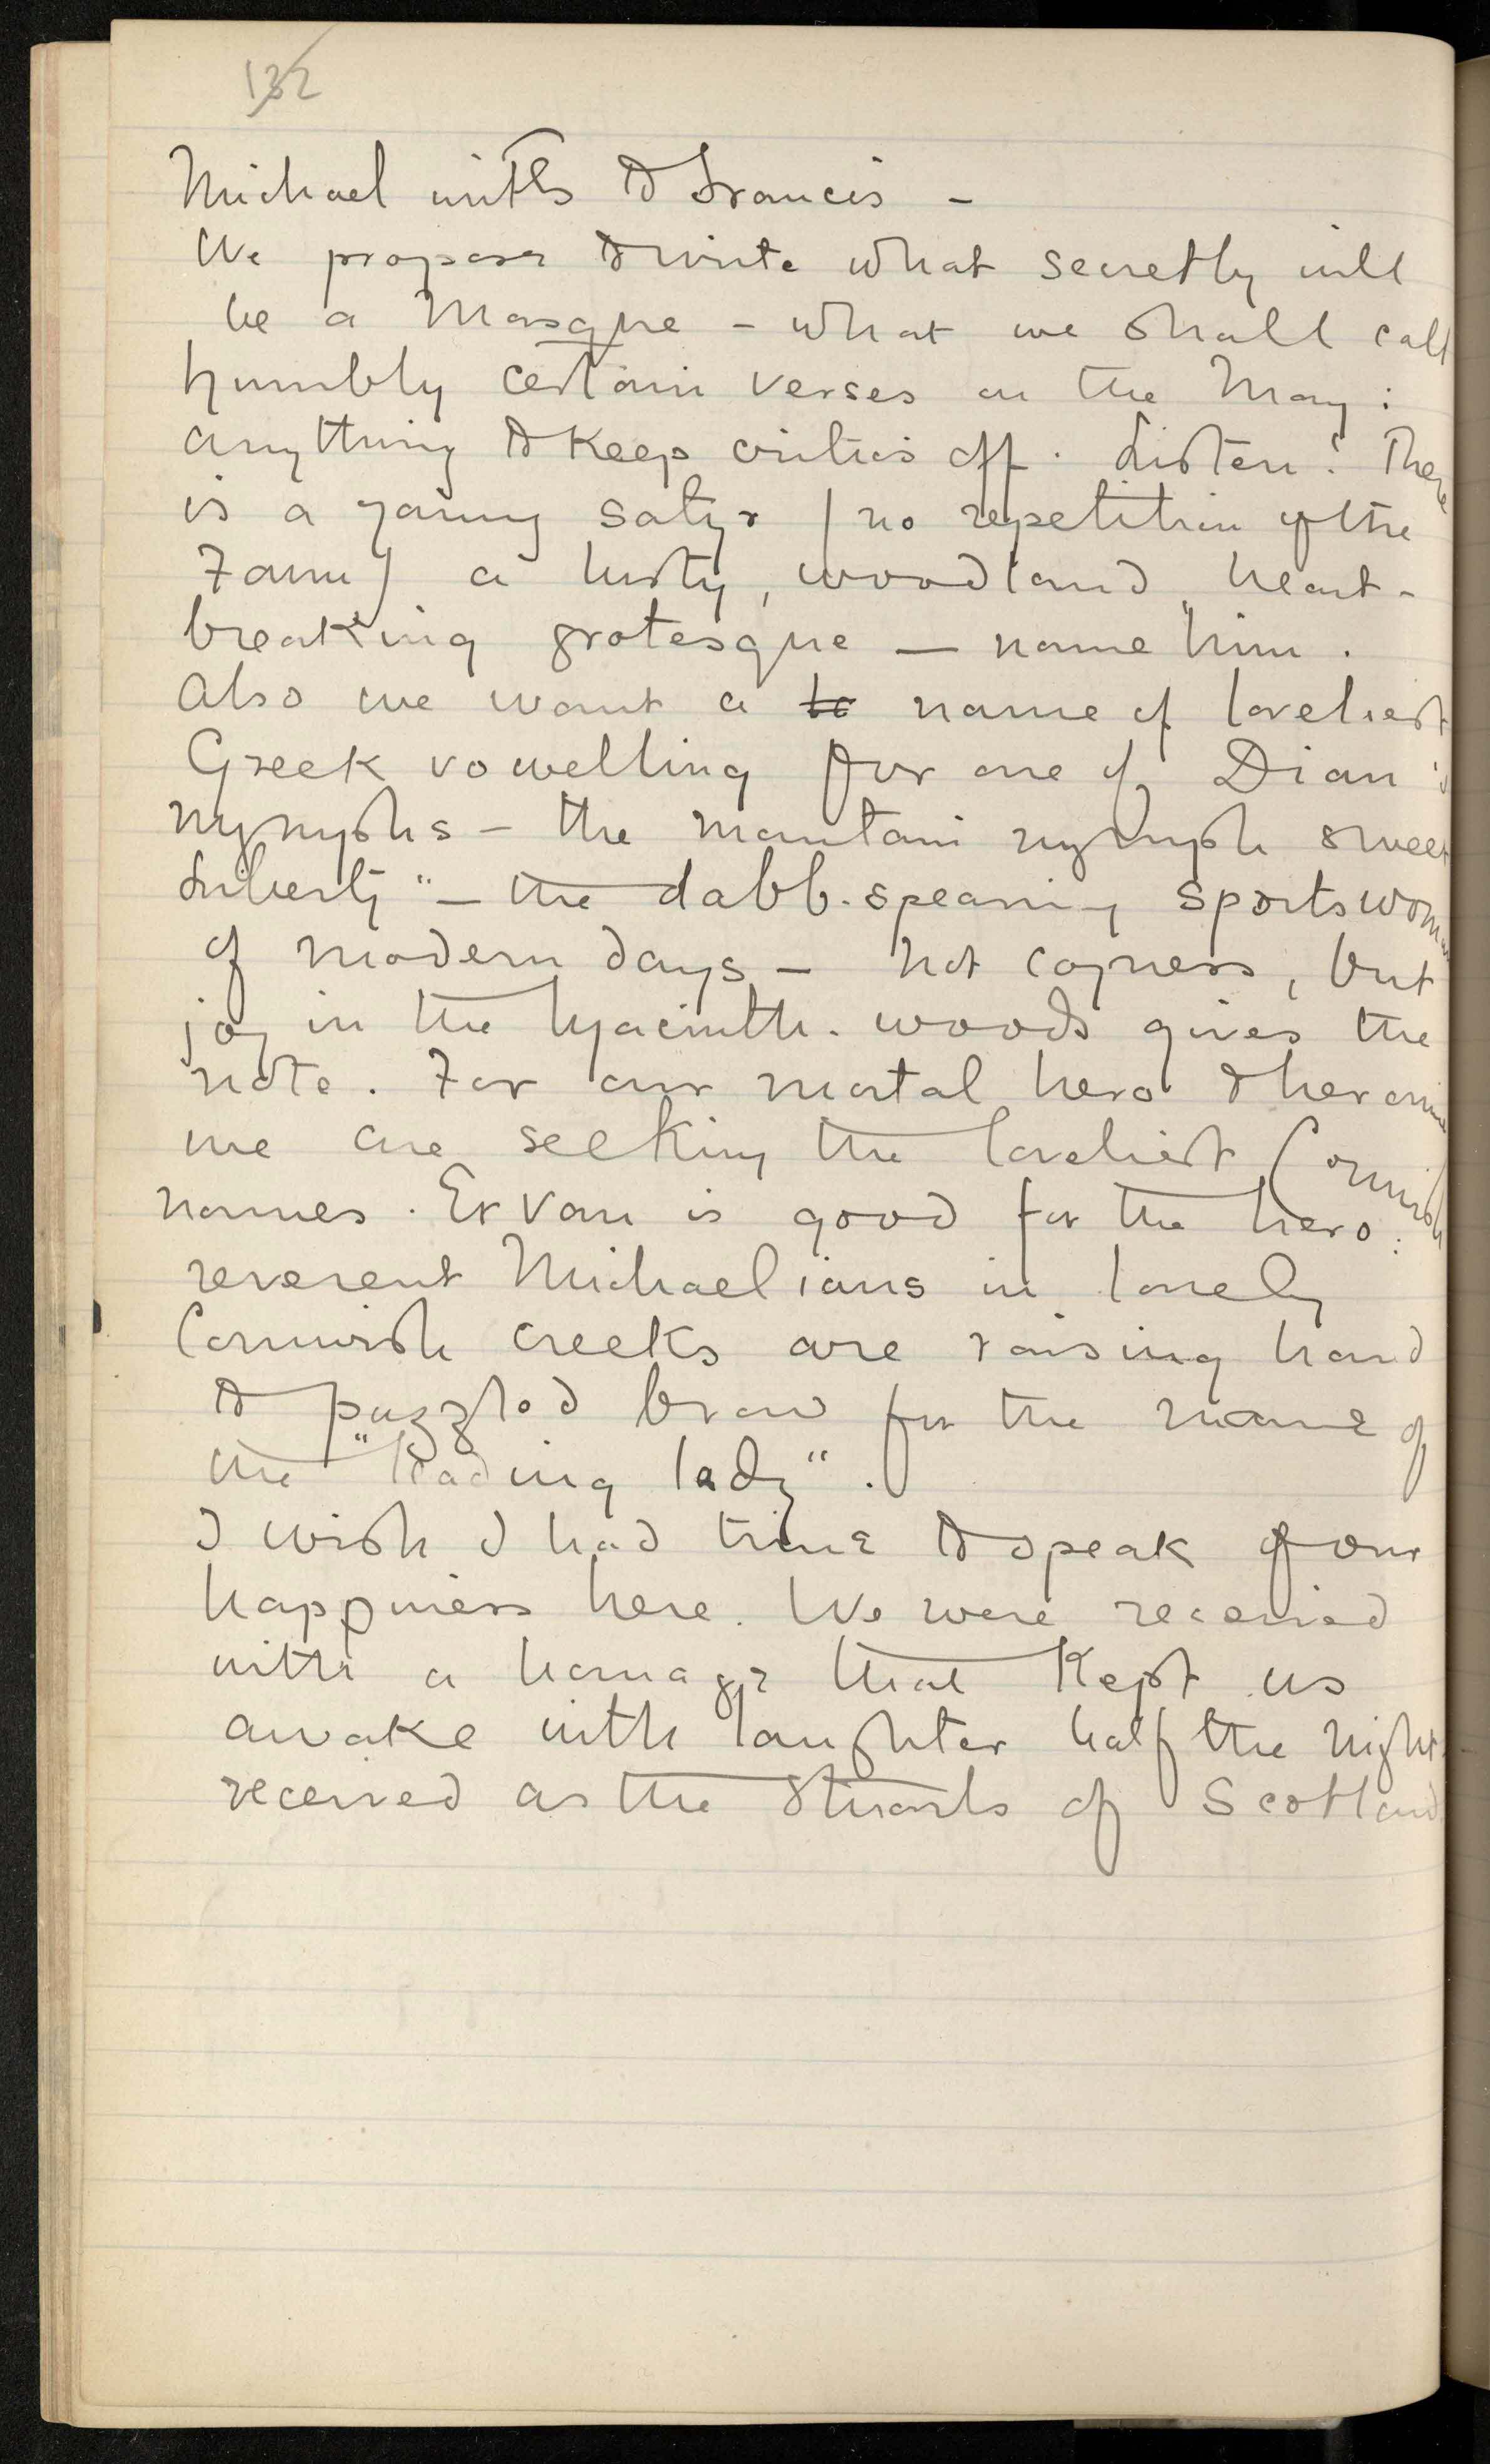 132
Michael writes to Francis -
We propose to write what secretly will
be a Masque - what we shall call
humbly certain verses on the May:
anything to keep critics off. Listen! There
is a young satyr (no repetition of the
Faun) a lusty, woodland, heart-
breaking grotesque — name him.
Also we want a to name of loveliest
Greek vowelling for one of Dian's
nymphs - the mountain nymph sweet
Liberty" - the dabb-spearing sportswoman
of modern days - not coyness, but
joy in the hyacinth-woods gives the
note. For our mortal hero & heroine
we are seeking the loveliest Cornish
names. Ervan is good for the hero:
reverent Michaelians in lonely
Cornish creeks are raising hand
to puzzled brow for the name of
the "leading lady".
I wish I had time to speak of our
happiness here. We were received
with a homage that kept us
awake with laughter half the night
received as the Stuarts of Scotland